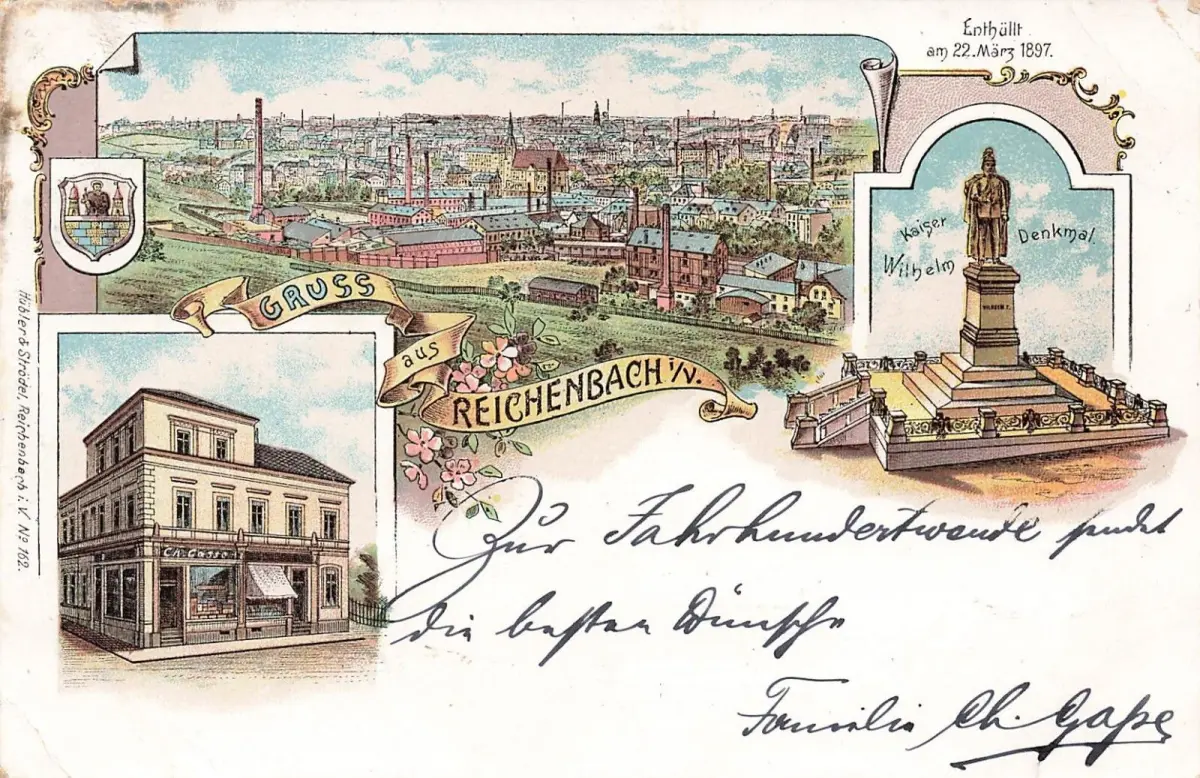 Enthüllt
am 22. März 1897.
Kaiser Wilhelm Denkmal.
WILHELM I.
GRUSS
aus
REICHENBACH i/V.
Hübler & Ströder, Reichenbach i. V. Nº 162.
Ch. Gasse
Zur Jahrhundertwende sendet
die besten Wünsche
Familie Ch. Gaße